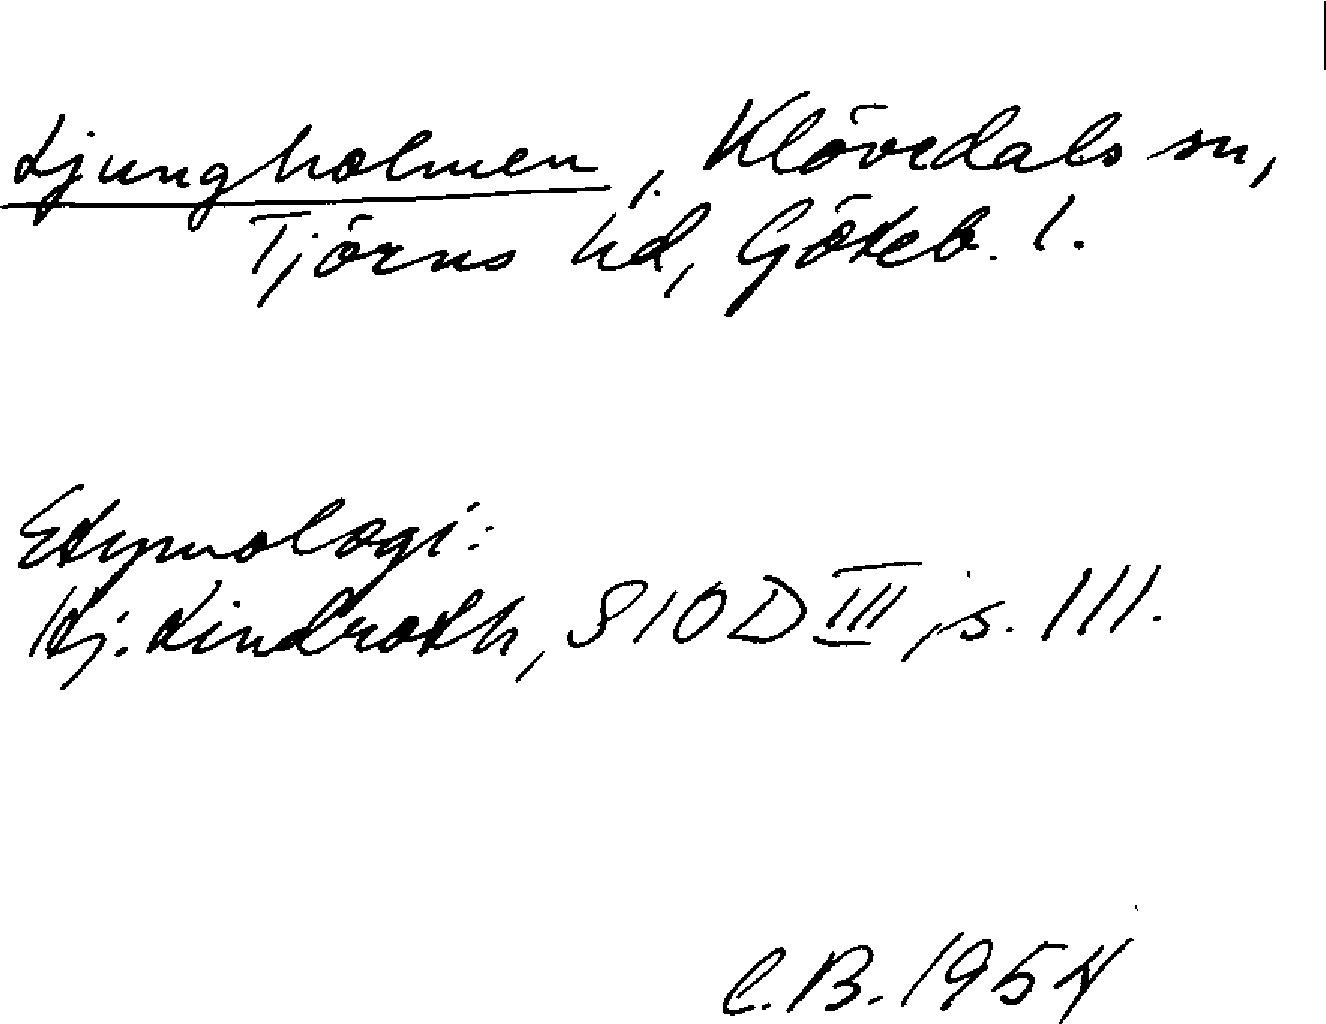 Ljungholmen, Klövedals sn,
Tjörns hd, Göteb. l.
Etymologi:
Hj. Lindroth, SIOD III, s. 111.
C.B. 1954